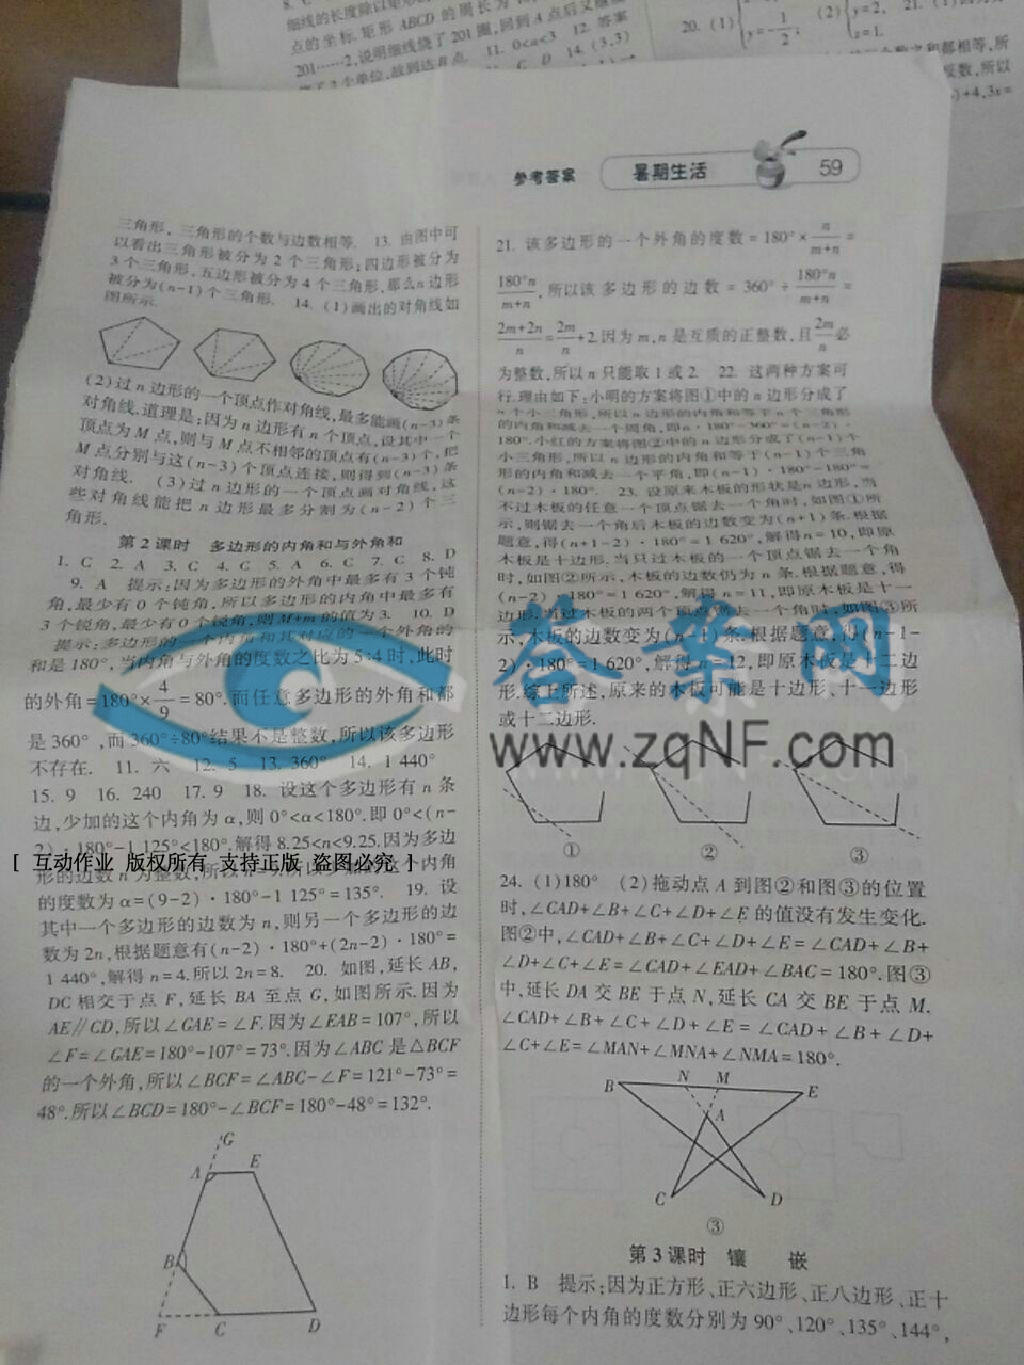 20. (1)
参考答案
暑期生活
59
三角形, 三角形的个数与边数相等. 13. 由图中可
以看出三角形被分为 2 个三角形; 四边形被分为
3 个三角形, 五边形被分为 4 个三角形, 那么 n 边形
被分为(n-1)个三角形. 14. (1)画出的对角线如
图所示.
(2)过 n 边形的一个顶点作对角线, 最多能画(n-3)条
对角线. 道理是: 因为 n 边形有 n 个顶点, 设其中一个
顶点为 M 点, 则与 M 点不相邻的顶点有(n-3)个, 把
M 点分别与这(n-3)个顶点连接, 则得到(n-3)条
对角线. (3)过 n 边形的一个顶点画对角线, 这
些对角线能把 n 边形最多分割为(n-2)个三
角形.
第 2 课时 多边形的内角和与外角和
1. C 2. A 3. C 4. G 5. A 6. C 7. C 8. D
9. A 提示: 因为多边形的外角中最多有 3 个钝
角, 最少有 0 个钝角, 所以多边形的内角中最多有
3 个锐角, 最少有 0 个锐角, 则 M+m 的值为 3. 10. D
提示: 多边形的一个内角和其对应的一个外角的
和是 180°, 当内角与外角的度数之比为 5:4 时, 此时
的外角 = 180° × 4/9 = 80°. 而任意多边形的外角和都
是 360°, 而 360°÷80°结果不是整数, 所以该多边形
不存在. 11. 六 12. 5 13. 360° 14. 1 440°
15. 9 16. 240 17. 9 18. 设这个多边形有 n 条
边, 少加的这个内角为 α, 则 0°<α<180°. 即 0°<(n-
2)·180°-1 125°<180°. 解得 8.25<n<9.25. 因为多边
[ 互动作业 版权所有 支持正版 盗图必究 ]
形的边数 n 为整数, 所以 n=9. 所以少加的这个内角
的度数为 α=(9-2)·180°-1 125°=135°. 19. 设
其中一个多边形的边数为 n, 则另一个多边形的边
数为 2n, 根据题意有(n-2)·180°+(2n-2)·180°=
1 440°, 解得 n=4. 所以 2n=8. 20. 如图, 延长 AB,
DC 相交于点 F, 延长 BA 至点 G, 如图所示. 因为
AE∥CD, 所以∠GAE=∠F. 因为∠EAB=107°, 所以
∠F=∠GAE=180°-107°=73°. 因为∠ABC 是△BCF
的一个外角, 所以∠BCF=∠ABC-∠F=121°-73°=
48°. 所以∠BCD=180°-∠BCF=180°-48°=132°.
G
A E
B
F C D
21. 该多边形的一个外角的度数 = 180° × n/(m+n) =
180°n/(m+n), 所以该多边形的边数 = 360° ÷ 180°n/(m+n) =
(2m+2n)/n = 2m/n + 2. 因为 m, n 是互质的正整数, 且 2m/n 必
为整数, 所以 n 只能取 1 或 2. 22. 这两种方案可
行. 理由如下: 小明的方案将图①中的 n 边形分成了
n 个小三角形, 所以 n 边形的内角和等于 n 个三角形
的内角和减去一个周角, 即 n·180°-360°=(n-2)·
180°. 小红的方案将图②中的 n 边形分成了(n-1)个
小三角形, 所以 n 边形的内角和等于(n-1)个三角
形的内角和减去一个平角, 即(n-1)·180°-180°=
(n-2)·180°. 23. 设原来木板的形状是 n 边形, 当
不过木板的任意一个顶点锯去一个角时, 如图①所
示, 则锯去一个角后木板的边数变为(n+1)条. 根据
题意, 得(n+1-2)·180°=1 620°, 解得 n=10, 即原
木板是十边形. 当只过木板的一个顶点锯去一个角
时, 如图②所示, 木板的边数仍为 n 条. 根据题意, 得
(n-2)·180°=1 620°, 解得 n=11, 即原木板是十一
边形. 当过木板的两个顶点锯去一个角时, 如图③所
示, 木板的边数变为(n-1)条. 根据题意, 得(n-1-
2)·180°=1 620°, 解得 n=12, 即原木板是十二边
形. 综上所述, 原来的木板可能是十边形、十一边形
或十二边形.
答案网
www.zqNF.com
① ② ③
24. (1)180° (2)拖动点 A 到图②和图③的位置
时, ∠CAD+∠B+∠C+∠D+∠E 的值没有发生变化.
图②中, ∠CAD+∠B+∠C+∠D+∠E=∠CAD+∠B+
∠D+∠C+∠E=∠CAD+∠EAD+∠BAC=180°. 图③
中, 延长 DA 交 BE 于点 N, 延长 CA 交 BE 于点 M.
∠CAD+∠B+∠C+∠D+∠E=∠CAD+∠B+∠D+
∠C+∠E=∠MAN+∠MNA+∠NMA=180°.
B N M E
A
C D
③
第 3 课时 镶 嵌
1. B 提示: 因为正方形、正六边形、正八边形、正十
边形每个内角的度数分别为 90°、120°、135°、144°,